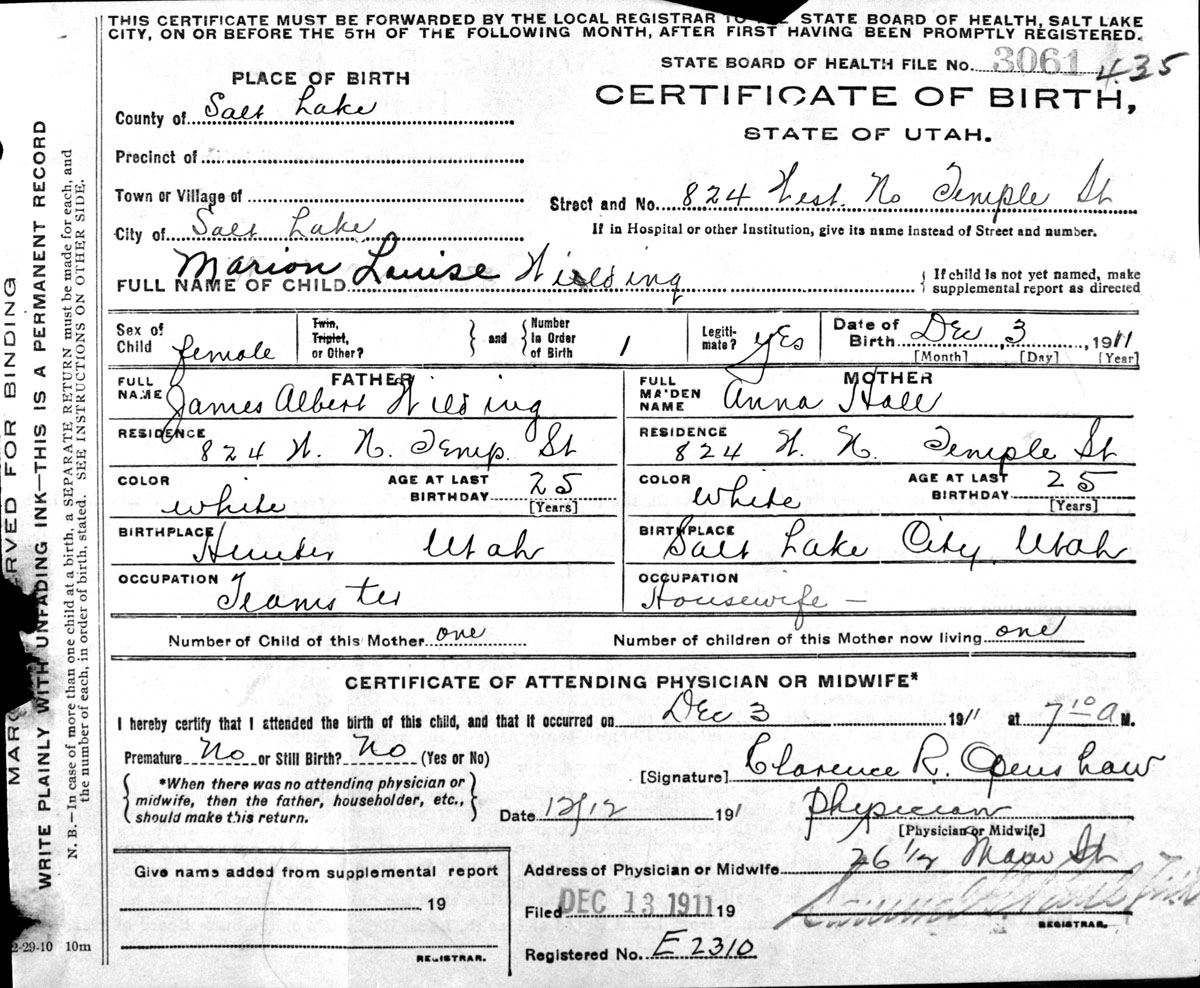 THIS CERTIFICATE MUST BE FORWARDED BY THE LOCAL REGISTRAR TO STATE BOARD OF HEALTH, SALT LAKE
CITY, ON OR BEFORE THE 5TH OF THE FOLLOWING MONTH, AFTER FIRST HAVING BEEN PROMPTLY REGISTERED.
STATE BOARD OF HEALTH FILE No. 3061 435
PLACE OF BIRTH
CERTIFICATE OF BIRTH,
STATE OF UTAH.
County of Salt Lake
Precinct of
Town or Village of
Street and No. 824 West. No Temple St
City of Salt Lake
If in Hospital or other Institution, give its name instead of Street and number.
FULL NAME OF CHILD Marion Louise Wilding
If child is not yet named, make
supplemental report as directed
Sex of Child female
Twin, Triplet, or Other?
and
Number in Order of Birth 1
Legiti-mate? yes
Date of Birth Dec 3, 1911
[Month] [Day] [Year]
FATHER
FULL NAME James Albert Wilding
MOTHER
FULL MAIDEN NAME Anna Hall
RESIDENCE 824 W. N. Temp. St
RESIDENCE 824 W. N. Temple St
COLOR white
AGE AT LAST BIRTHDAY 25 [Years]
COLOR White
AGE AT LAST BIRTHDAY 25 [Years]
BIRTHPLACE Hunter Utah
BIRTHPLACE Salt Lake City, Utah
OCCUPATION Teamster
OCCUPATION Housewife —
Number of Child of this Mother one
Number of children of this Mother now living one
CERTIFICATE OF ATTENDING PHYSICIAN OR MIDWIFE*
I hereby certify that I attended the birth of this child, and that it occurred on Dec 3 1911 at 7 10 a M.
Premature No or Still Birth? No (Yes or No)
*When there was no attending physician or
midwife, then the father, householder, etc.,
should make this return.
[Signature] Clarence R. Openshaw
Date 12/12 1911
Physician
[Physician or Midwife]
Give name added from supplemental report
19
REGISTRAR.
Address of Physician or Midwife 26 1/2 Main St
Filed DEC 13 1911 19
REGISTRAR.
Registered No. E 2310
2-29-10 10m
RVED FOR BINDING
WRITE PLAINLY WITH UNFADING INK—THIS IS A PERMANENT RECORD
N. B.—In case of more than one child at a birth, a SEPARATE RETURN must be made for each, and
the number of each, in order of birth, stated. SEE INSTRUCTIONS ON OTHER SIDE.